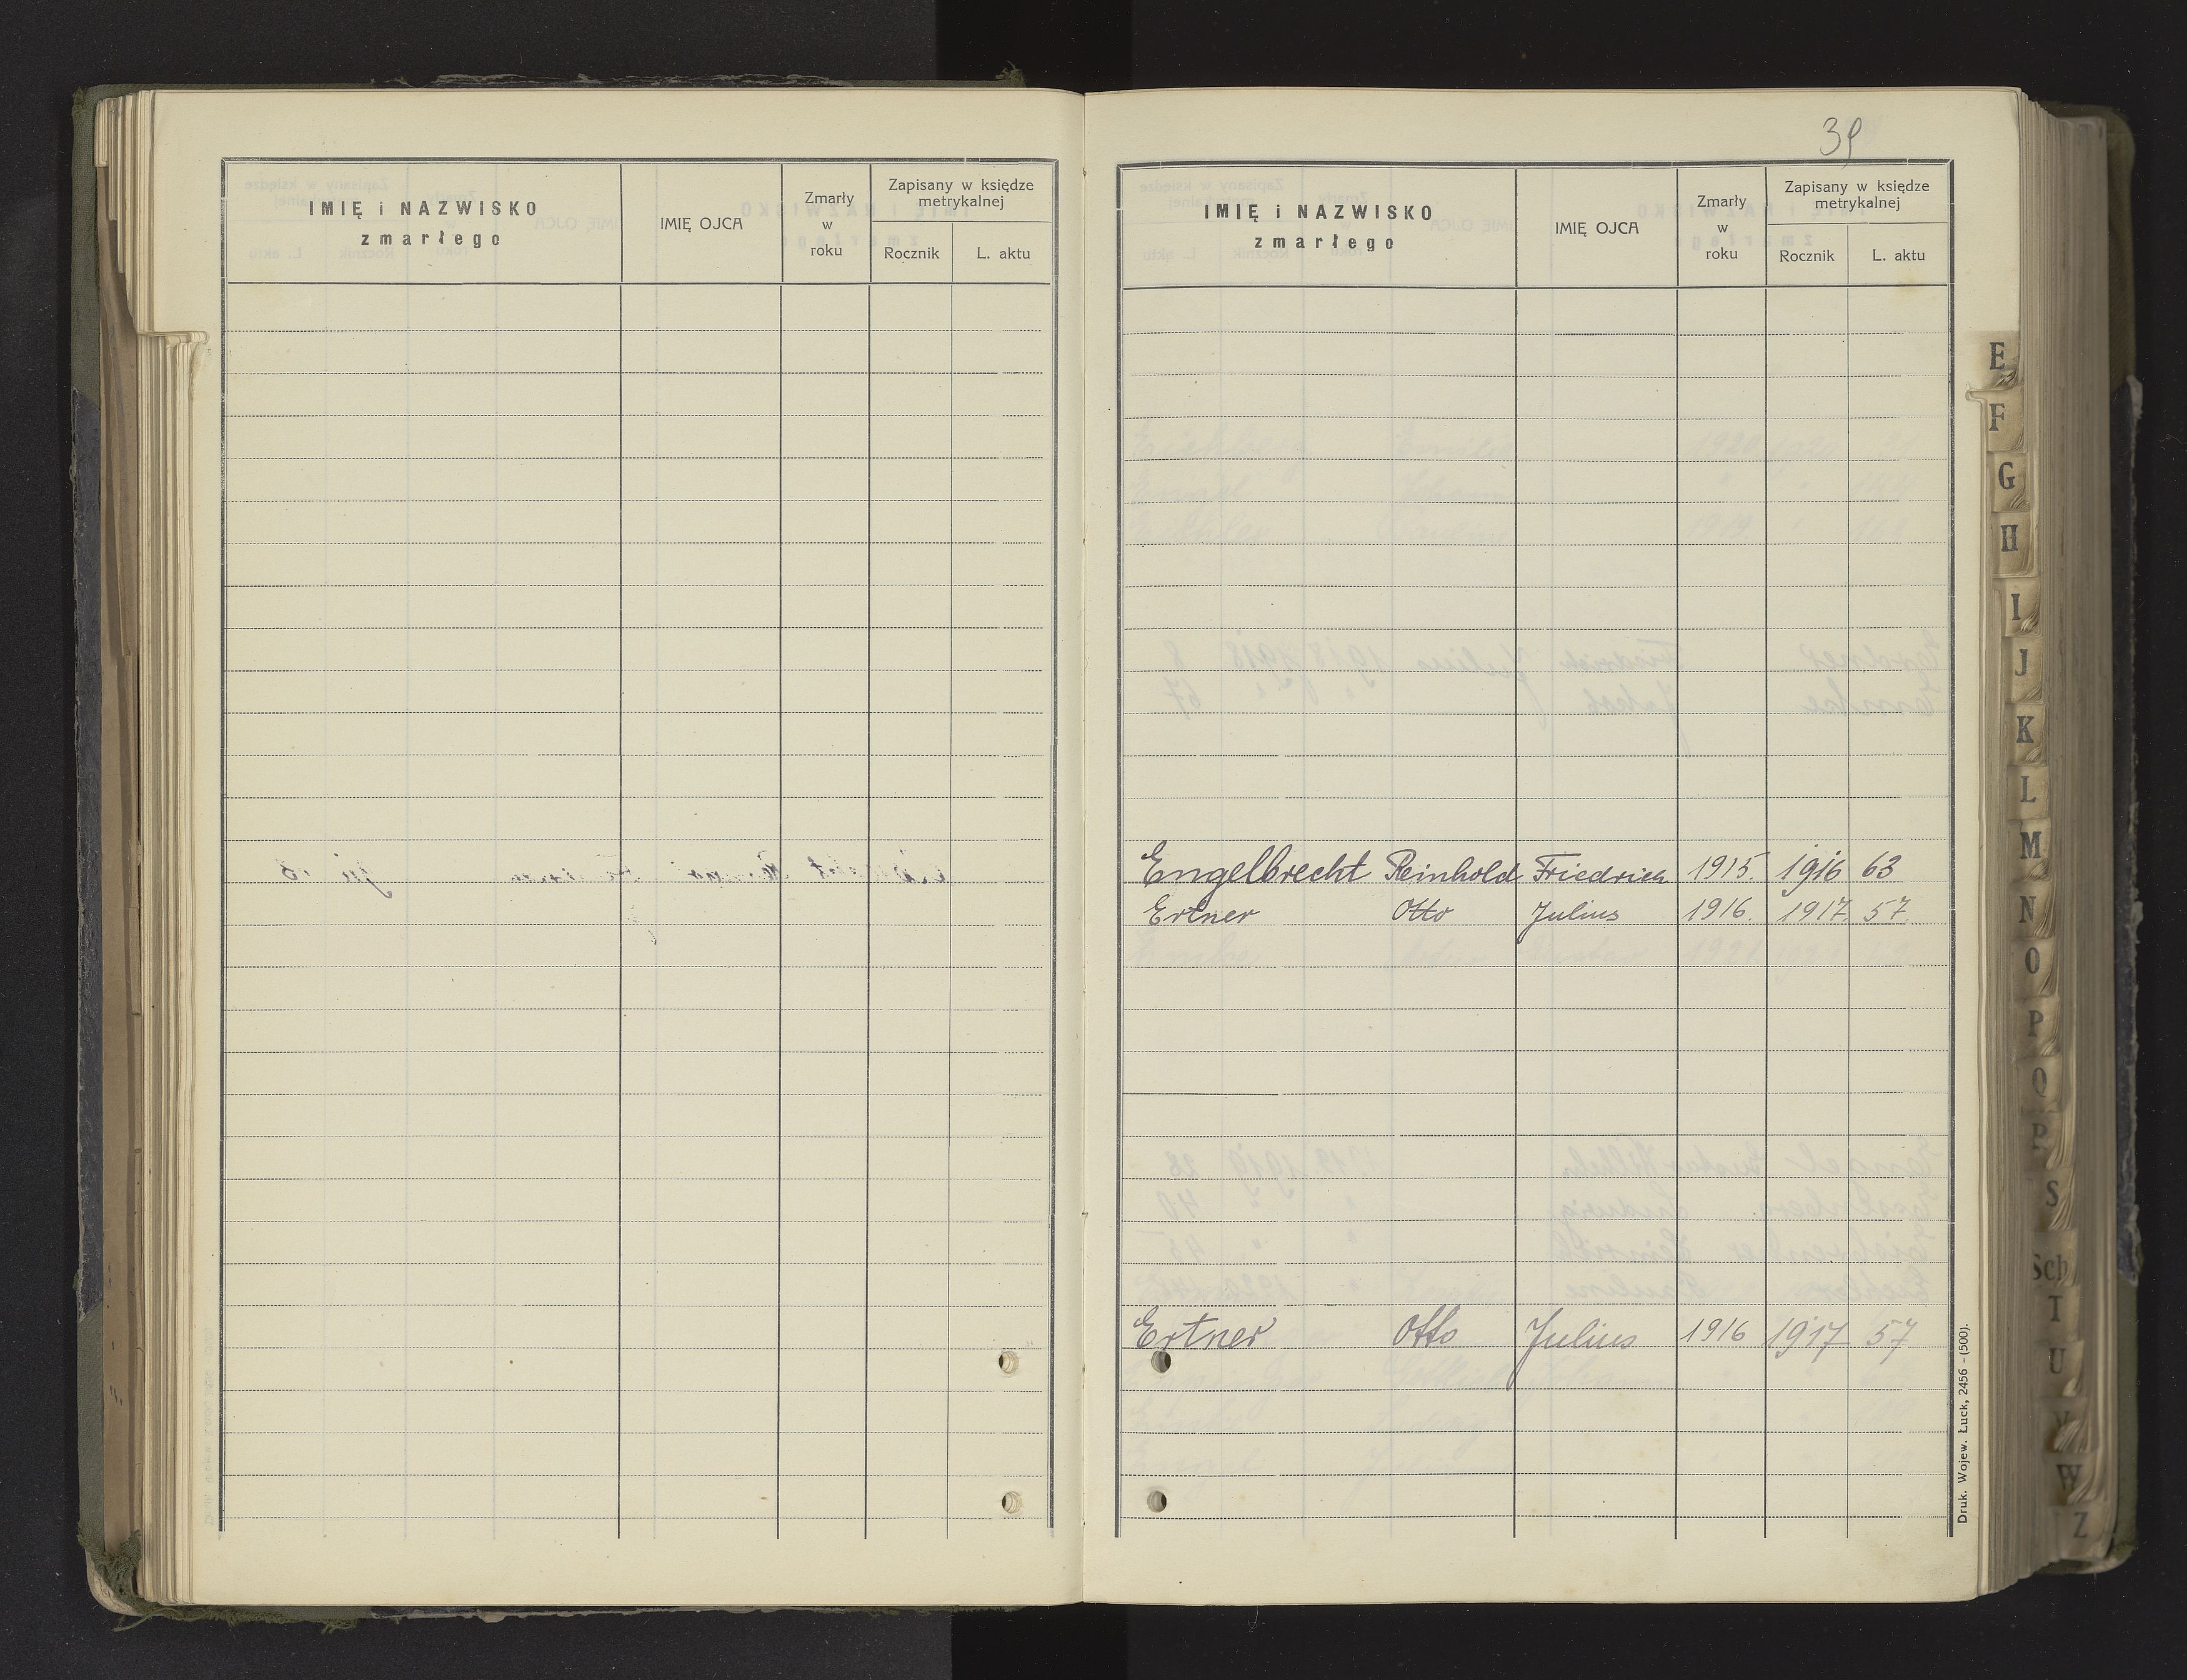 IMIĘ i NAZWISKO
zmarłego
IMIĘ OJCA
Zmarły
w
roku
Zapisany w księdze
metrykalnej
Rocznik
L. aktu
39
IMIĘ i NAZWISKO
zmarłego
IMIĘ OJCA
Zmarły
w
roku
Zapisany w księdze
metrykalnej
Rocznik
L. aktu
Engelbrecht Reinhold Friedrich 1915. 1916 63
Ertner Otto Julius 1916. 1917. 57.
Ertner Otto Julius 1916 1917 57
Druk. Wojew. Łuck, 2456 - (500).
E
F
G
H
I
J
K
L
M
N
O
P
R
S
Sch
T
U
V
W
Z